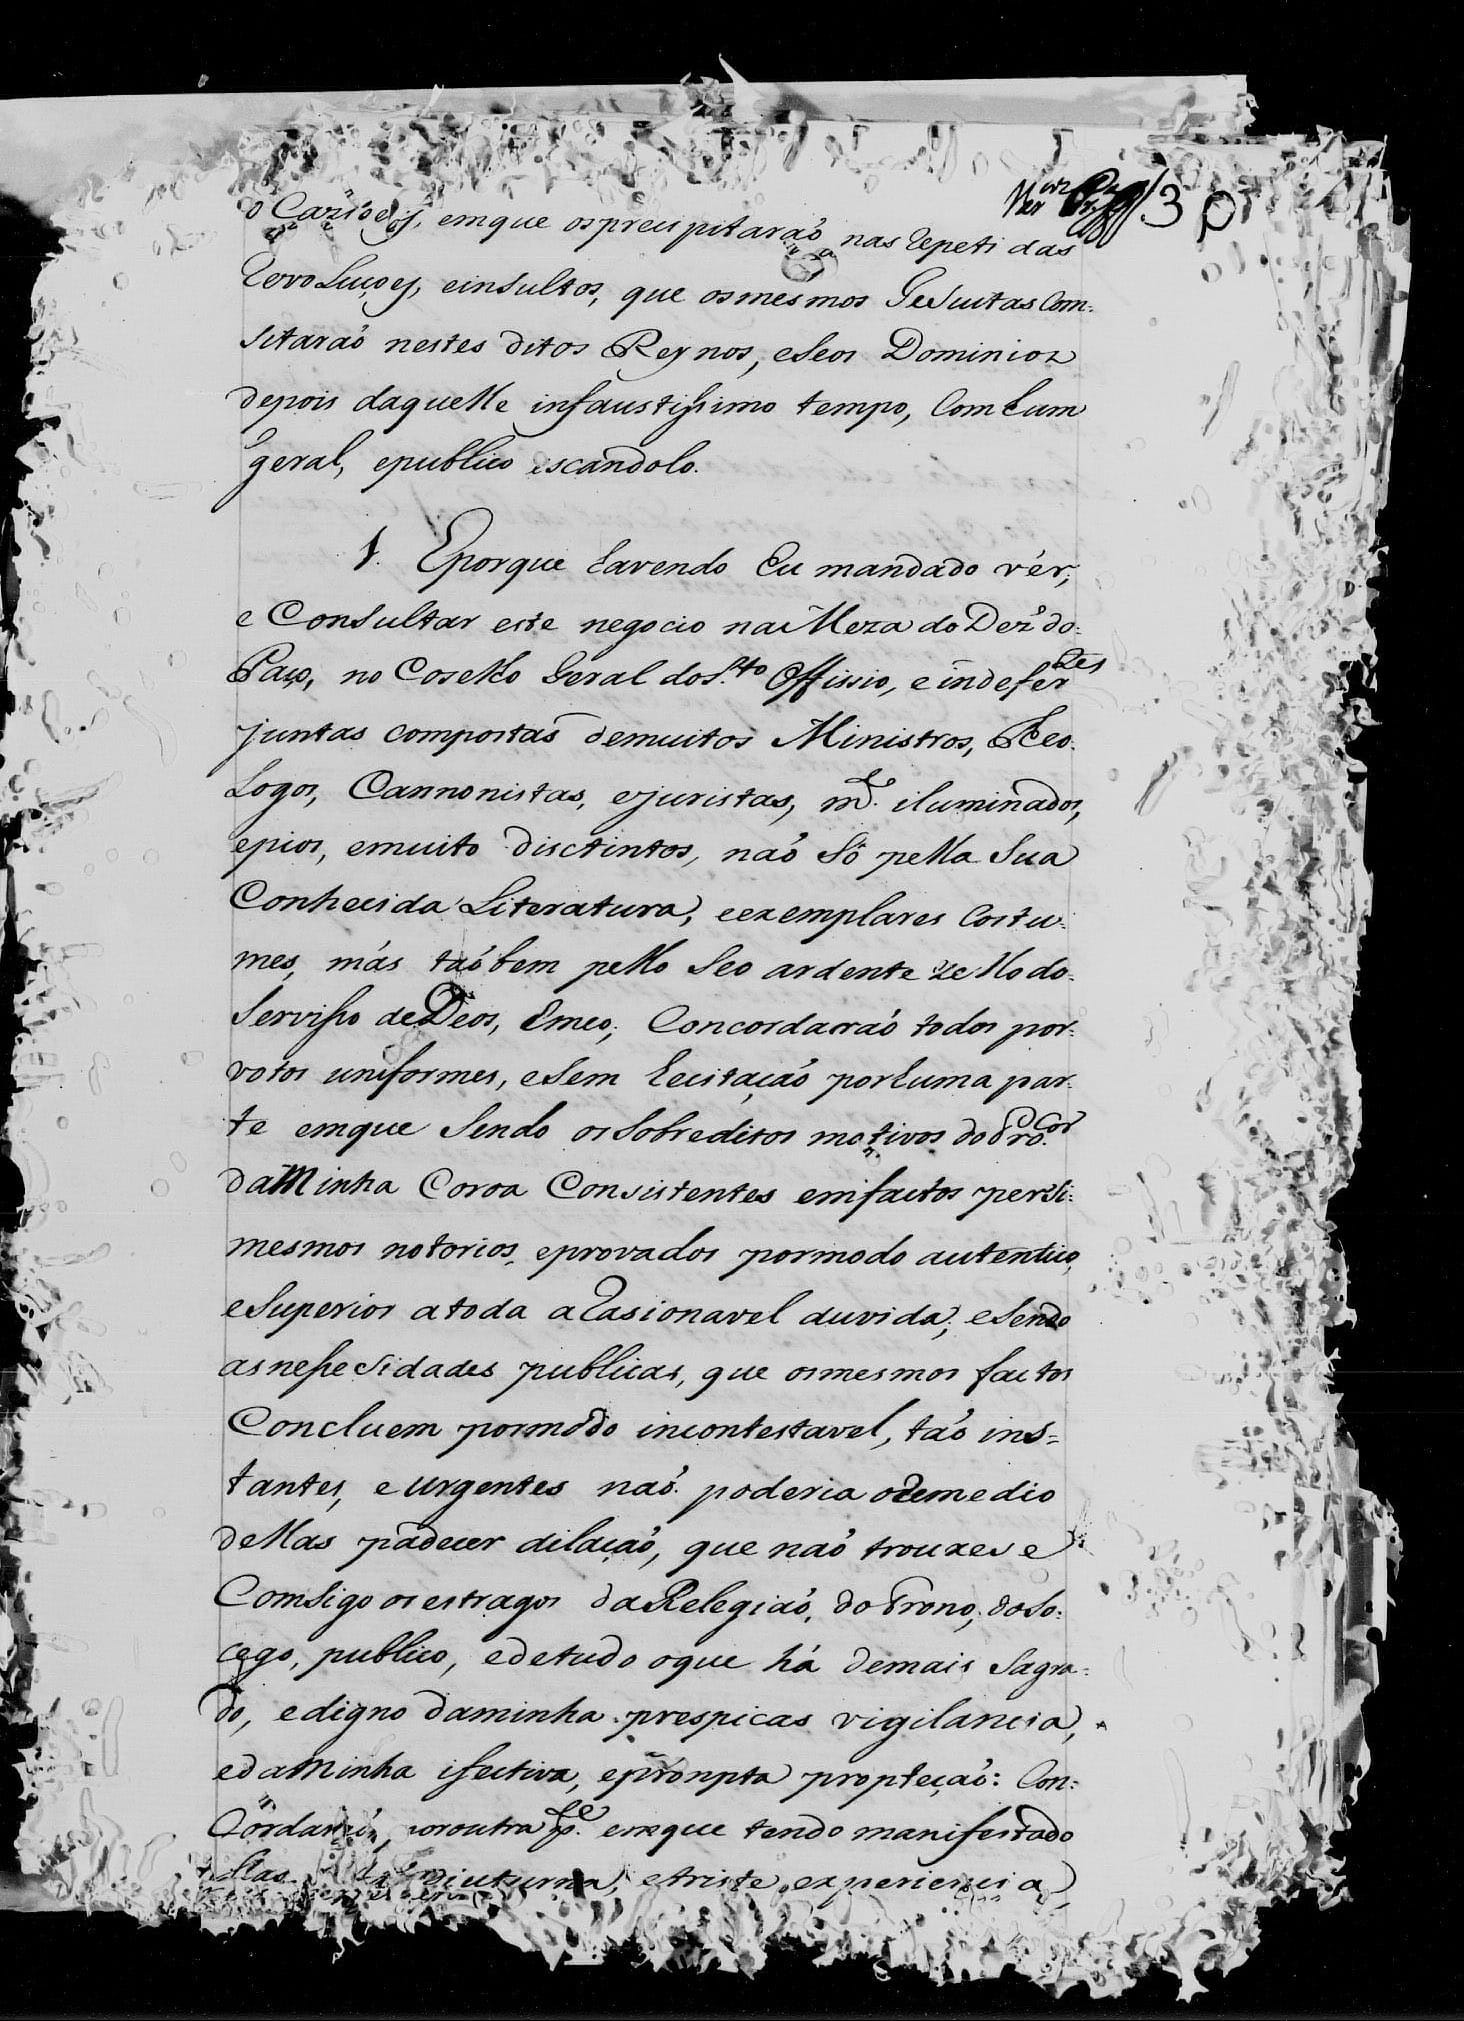 30
o Cazioeş, emque os precipitaraõ nas repetidas
revoluçoeş, einsultos, que osmesmos Gesuitas Com-
sitaraõ nestes ditos Reynos, eSeos Dominios
depois daquelle infaustissimo tempo, Com hum
geral, epublico escandolo.
§. Eporque havendo Eu mandado vér,
e Consultar este negocio na Meza do Dez.º do-
Paço, no Coselho Geral do S.to Officio, e indefer.tes
juntas compostas demuitos Ministros, Theo-
Logos, Cannonistas, ejuristas, m.to iluminados,
epios, emuito disctintos, naõ Só pella Sua
Conhecida Literatura, eexemplares Costu-
mes, más taõbem pello Seo ardente zello do-
Servisso deDeos, Emeo; Concordaraõ todos por-
votos uniformes, eSem hecitaçaõ porhuma par-
te emque Sendo osSobreditos motivos do Pro.cor
daMinha Coroa Consistentes emfactos perSi-
mesmos notorios, eprovados pormodo autentico,
eSuperior atoda aRasionavel duvida; eSendo
asnesseSidades publicas, que osmesmos factos
Concluem pormodo incontestavel, taõ ins-
tantes, e urgentes naõ poderia oremedio
dellas padecer dilaçaõ, que naõ trouxese
ComSigo osestragos daRelegiaõ, do Trono, doSo-
cego, publico, edetudo oque há demais Sagra-
do, edigno daminha prespicas vigilancia,
edaMinha ifectiva, epronpta propteçaõ: Con-
Cordaraõ, poroutra p.te emque tendo manifestado
diuturna, etriste experiencia,